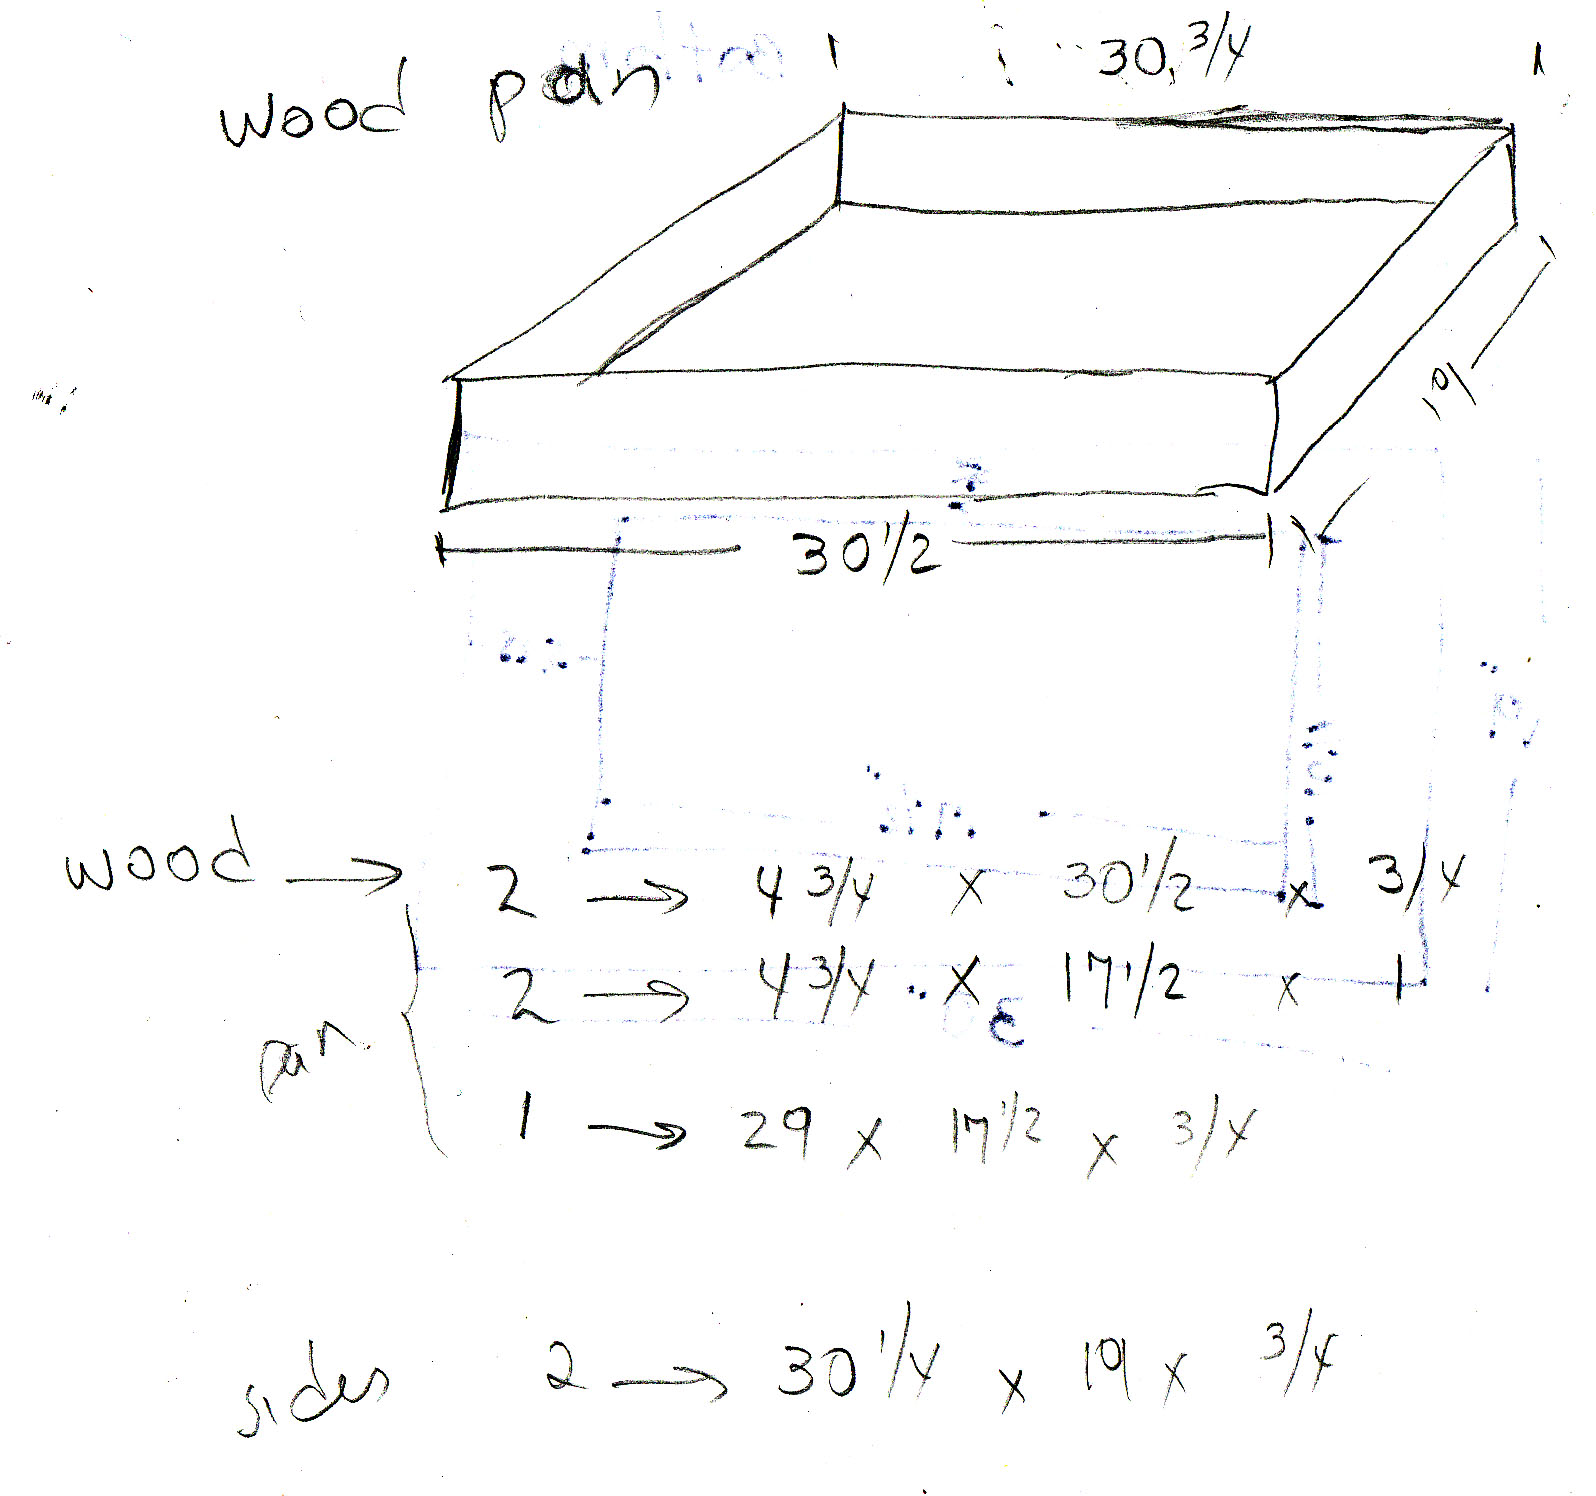 wood pan
30 3/4
19
30 1/2
wood → 2 → 4 3/4 x 30 1/2 x 3/4
2 → 4 3/4 x 17 1/2 x 1
pan
1 → 29 x 17 1/2 x 3/4
sides 2 → 30 1/4 x 19 x 3/4